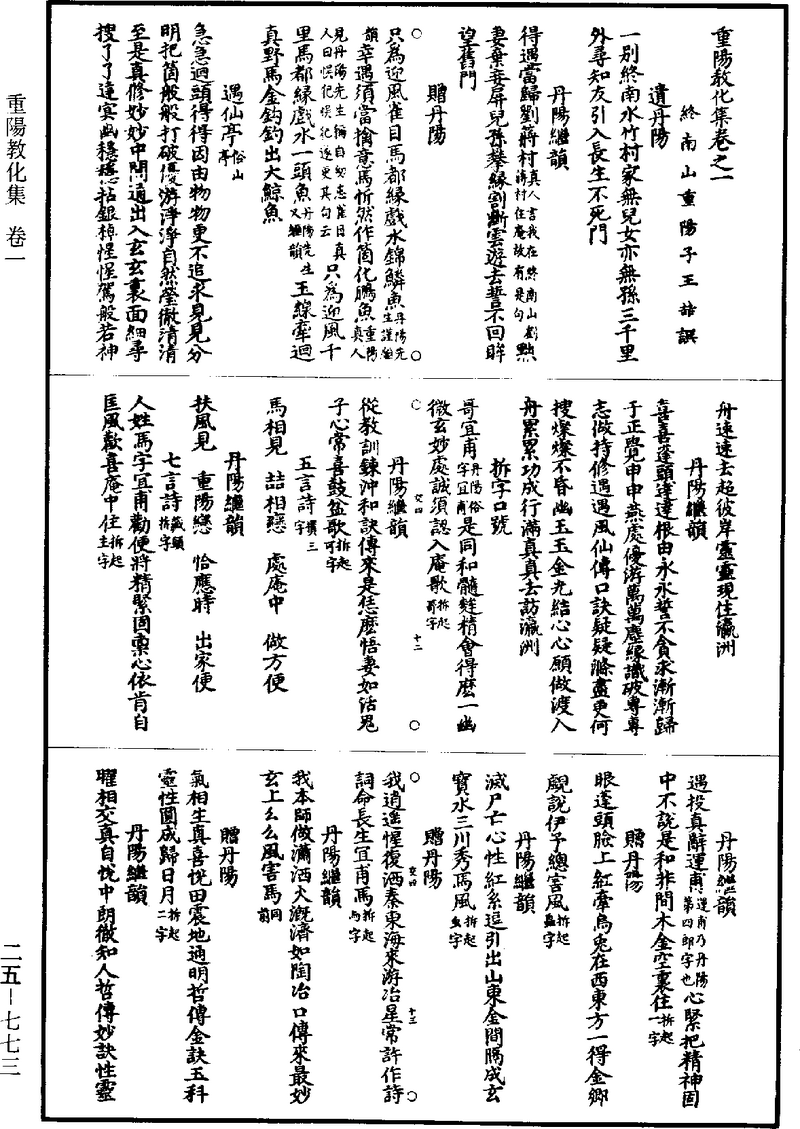 重陽教化集卷之一
終南山重陽子王嚞譔
遺丹陽
一別終南水竹村家無兒女亦無孫三千里
外尋知友引入長生不死門
丹陽繼韻
得遇當歸劉蔣村真人言我在終南山劉蔣村住庵故有是句㸃
妻棄妾屏兒孫攀緣割斷雲游去誓不回眸
望舊門
贈丹陽
只為迎風雀目馬都緣戲水錦鱗魚丹陽先生謹繼
韻幸遇須當擒意馬忻然作箇化鵬魚重陽真人
見丹陽先生稱自幼患雀目真人曰悮犯悮犯遂更其句云只為迎風千
里馬都緣戲水一頭魚丹陽先生又繼韻玉線牽迴
真野馬金鈎釣出大鯨魚
遇仙亭俗山亭
急急迴頭得得因由物物更不追求見見分
明把箇般般打破優游淨淨自然瑩徹清清
至是真修妙妙中間通出入玄玄裏面細尋
搜了了達冥幽穩穩拈銀棹惺惺駕般若神
舟速速去超彼岸靈靈現住瀛洲
丹陽繼韻
喜喜蓬頭達達根由永永誓不貪求漸漸歸
于正覺申申燕處優游萬萬塵緣識破專專
志做持修遇遇風仙傳口訣疑疑滌盡更何
搜燦燦不昏幽玉玉金光結心心願做渡入
舟累累功成行滿真真去訪瀛洲
拆字口號
哥宜甫丹陽俗字宜甫是同和髓蕤精會得麽一幽
微玄妙處誠須認入庵歌拆起哥字
丹陽繼韻
從教訓鍊沖和訣傳來是恁麽悟妻如活鬼
子心常喜鼓盆歌拆起可字
五言詩攢三字
馬相見　嚞相戀　處庵中　做方便
丹陽繼韻
扶風見　重陽戀　恰應時　出家便
七言詩藏頭拆字
人姓馬字宜甫勸便將精緊固稟心依肯自
匡風歡喜庵中住拆起主字
丹陽繼韻
遇投真辭運甫運甫乃丹陽第四郎字也心緊把精神固
中不說是和非間木金空裏住拆起一字
贈丹陽
眼蓬頭臉上紅牽烏兎在西東方一得金鄉
覷說伊予總害風拆起蟲字
丹陽繼韻
滅尸亡心性紅糸逗引出山東金間隔成玄
寶水三川秀馬風拆起虫字
贈丹陽
我逍遥惺復洒秦東海來游冶星常許作詩
詞命長生宜甫馬拆起馬字
丹陽繼韻
我本師做瀟洒火溉濟如陶冶口傳來最妙
玄上幺幺風害馬同前
贈丹陽
氣相生真喜悅田震地通明哲傳金訣五科
靈性圓成歸日月拆起二字
丹陽繼韻
曜相交真自悅中朗徹知人哲傳妙訣性靈
重陽教化集　卷一
二五－七七三